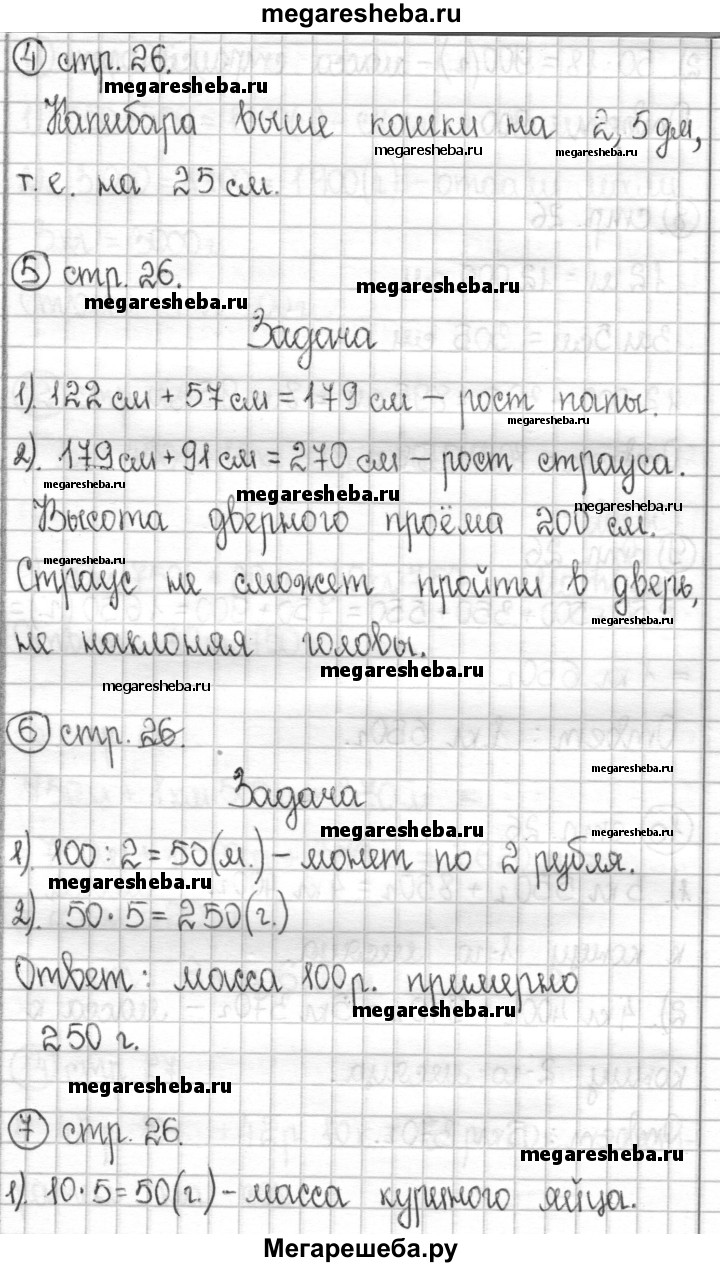 megaresheba.ru
④ стр. 26.
megaresheba.ru
Капибара выше кошки на 2,5 дм,
megaresheba.ru megaresheba.ru
т.е. на 25 см.
⑤ стр. 26.
megaresheba.ru
megaresheba.ru
Задача
1). 122 см + 57 см = 179 см – рост папы.
megaresheba.ru
2). 179 см + 91 см = 270 см – рост страуса.
megaresheba.ru megaresheba.ru megaresheba.ru
Высота дверного проёма 200 см.
megaresheba.ru
Страус не сможет пройти в дверь,
megaresheba.ru
не наклоняя головы.
megaresheba.ru
megaresheba.ru
⑥ стр. 26.
megaresheba.ru
Задача
megaresheba.ru megaresheba.ru
1). 100 : 2 = 50 (м.) – монет по 2 рубля.
megaresheba.ru
2). 50 · 5 = 250 (г.)
Ответ: масса 100 р. примерно
megaresheba.ru
250 г.
megaresheba.ru
⑦ стр. 26.
megaresheba.ru
1). 10 · 5 = 50 (г.) – масса куриного яйца.
Мегарешеба.ру